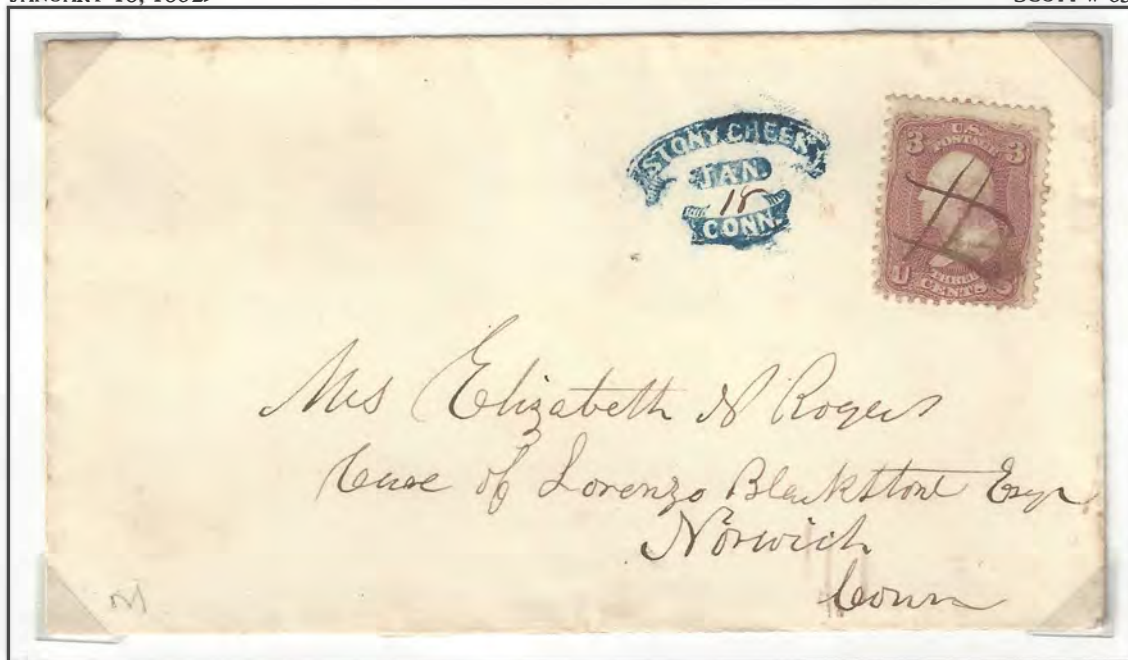 STONY CREEK
JAN
18
CONN.
3 U.S. 3
POSTAGE
THREE
U CENTS S
Mrs Elizabeth N Rogers
Care of Lorenzo Blackstone Esqr
Norwich
Conn